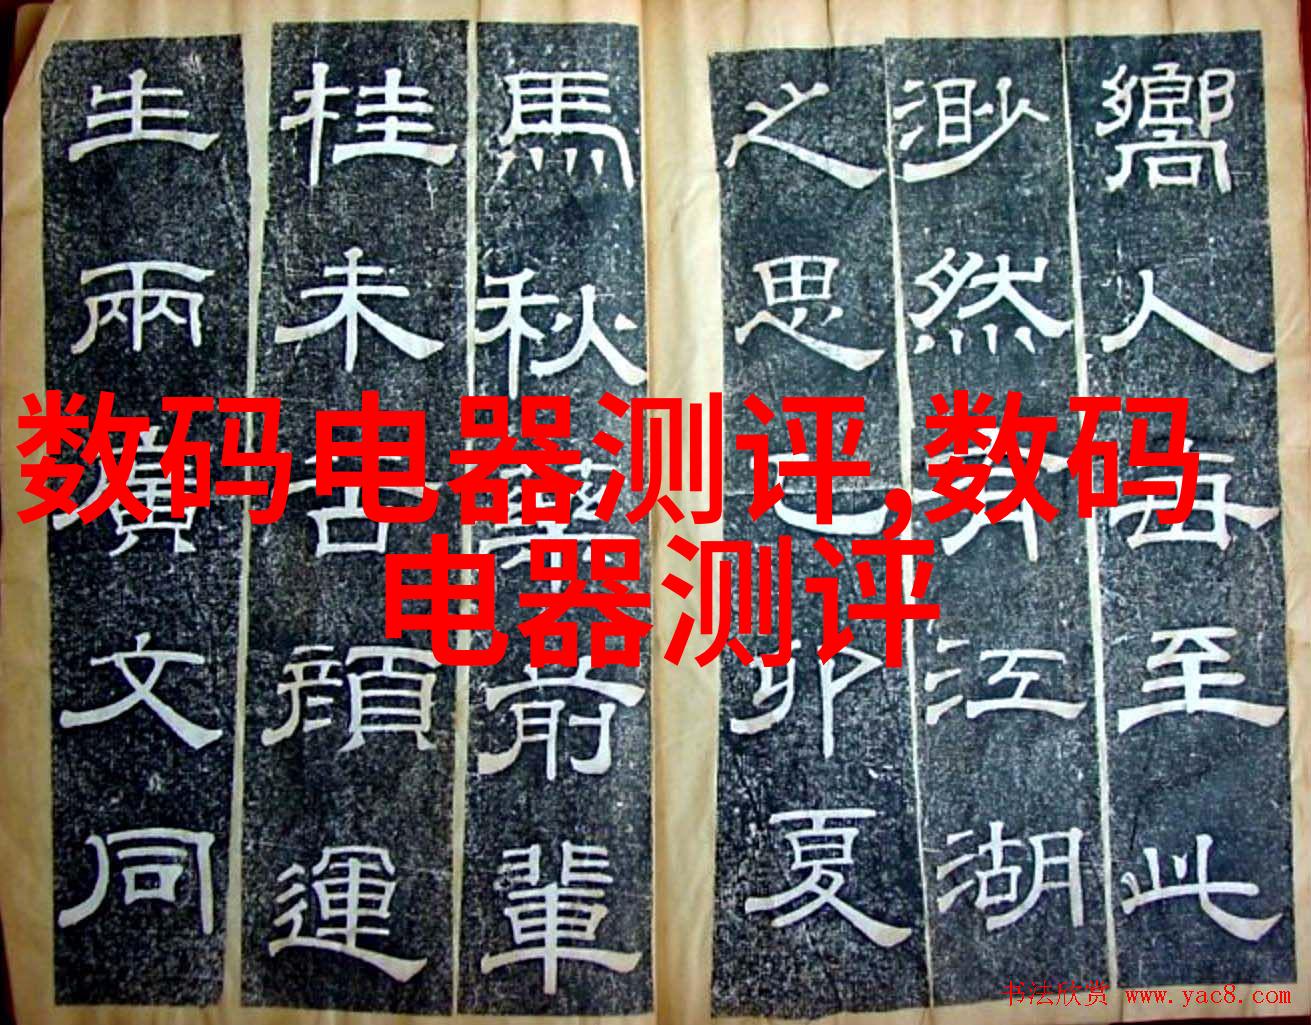 嚮人每至此
渺然有江湖
之思己卯夏
馬秋藥前輩
桂未谷顏運
生兩廣文同
数码电器测评,数码
电器测评
书法欣赏 www.yac8.com